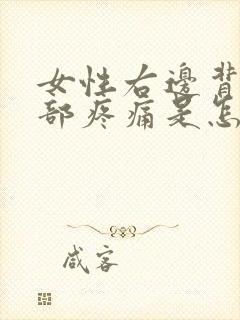 女性右邊背
部疼痛是怎
咸客